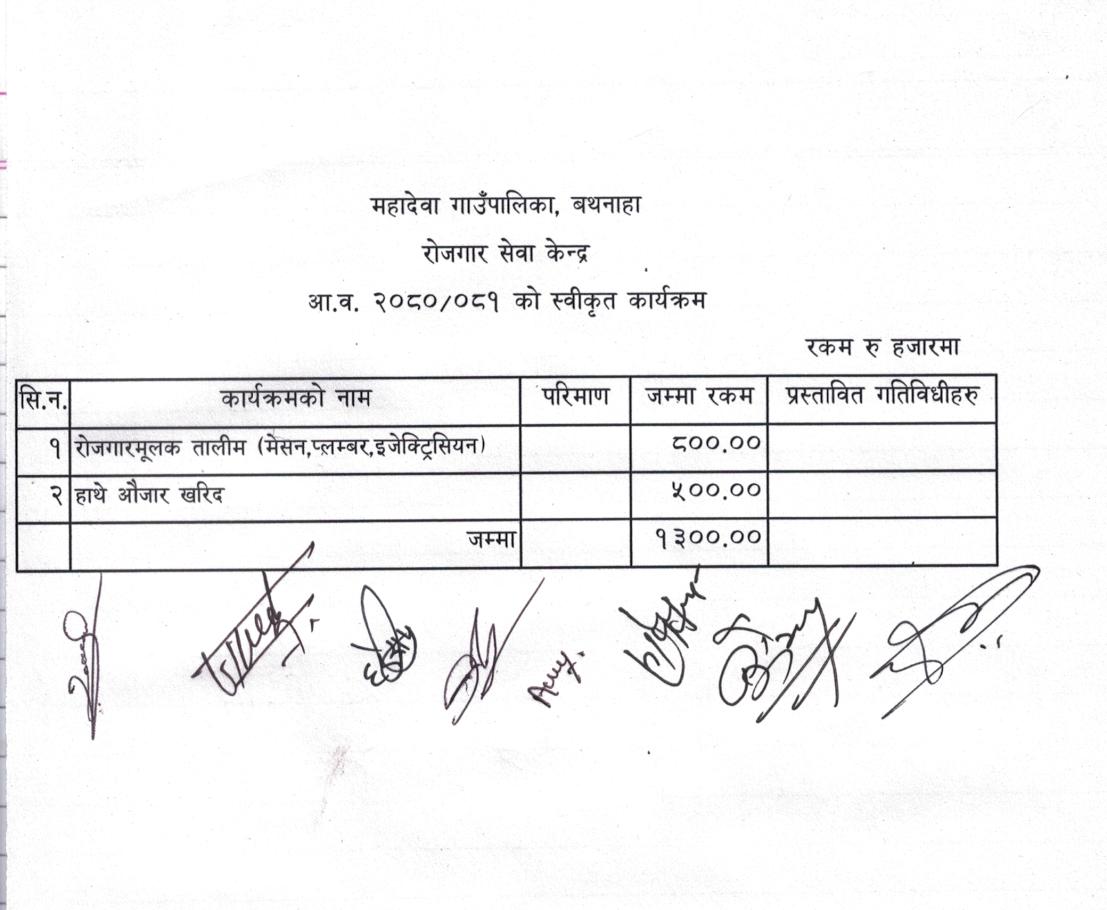 महादेवा गाउँपालिका, बथनाहा
रोजगार सेवा केन्द्र
आ.व. २०८०/०८१ को स्वीकृत कार्यक्रम
रकम रु हजारमा
सि.न. कार्यक्रमको नाम परिमाण जम्मा रकम प्रस्तावित गतिविधीहरु
१ रोजगारमूलक तालीम (मेसन,प्लम्बर,इजेक्ट्रिसियन) ८००.००
२ हाथे औजार खरिद ५००.००
जम्मा १३००.००